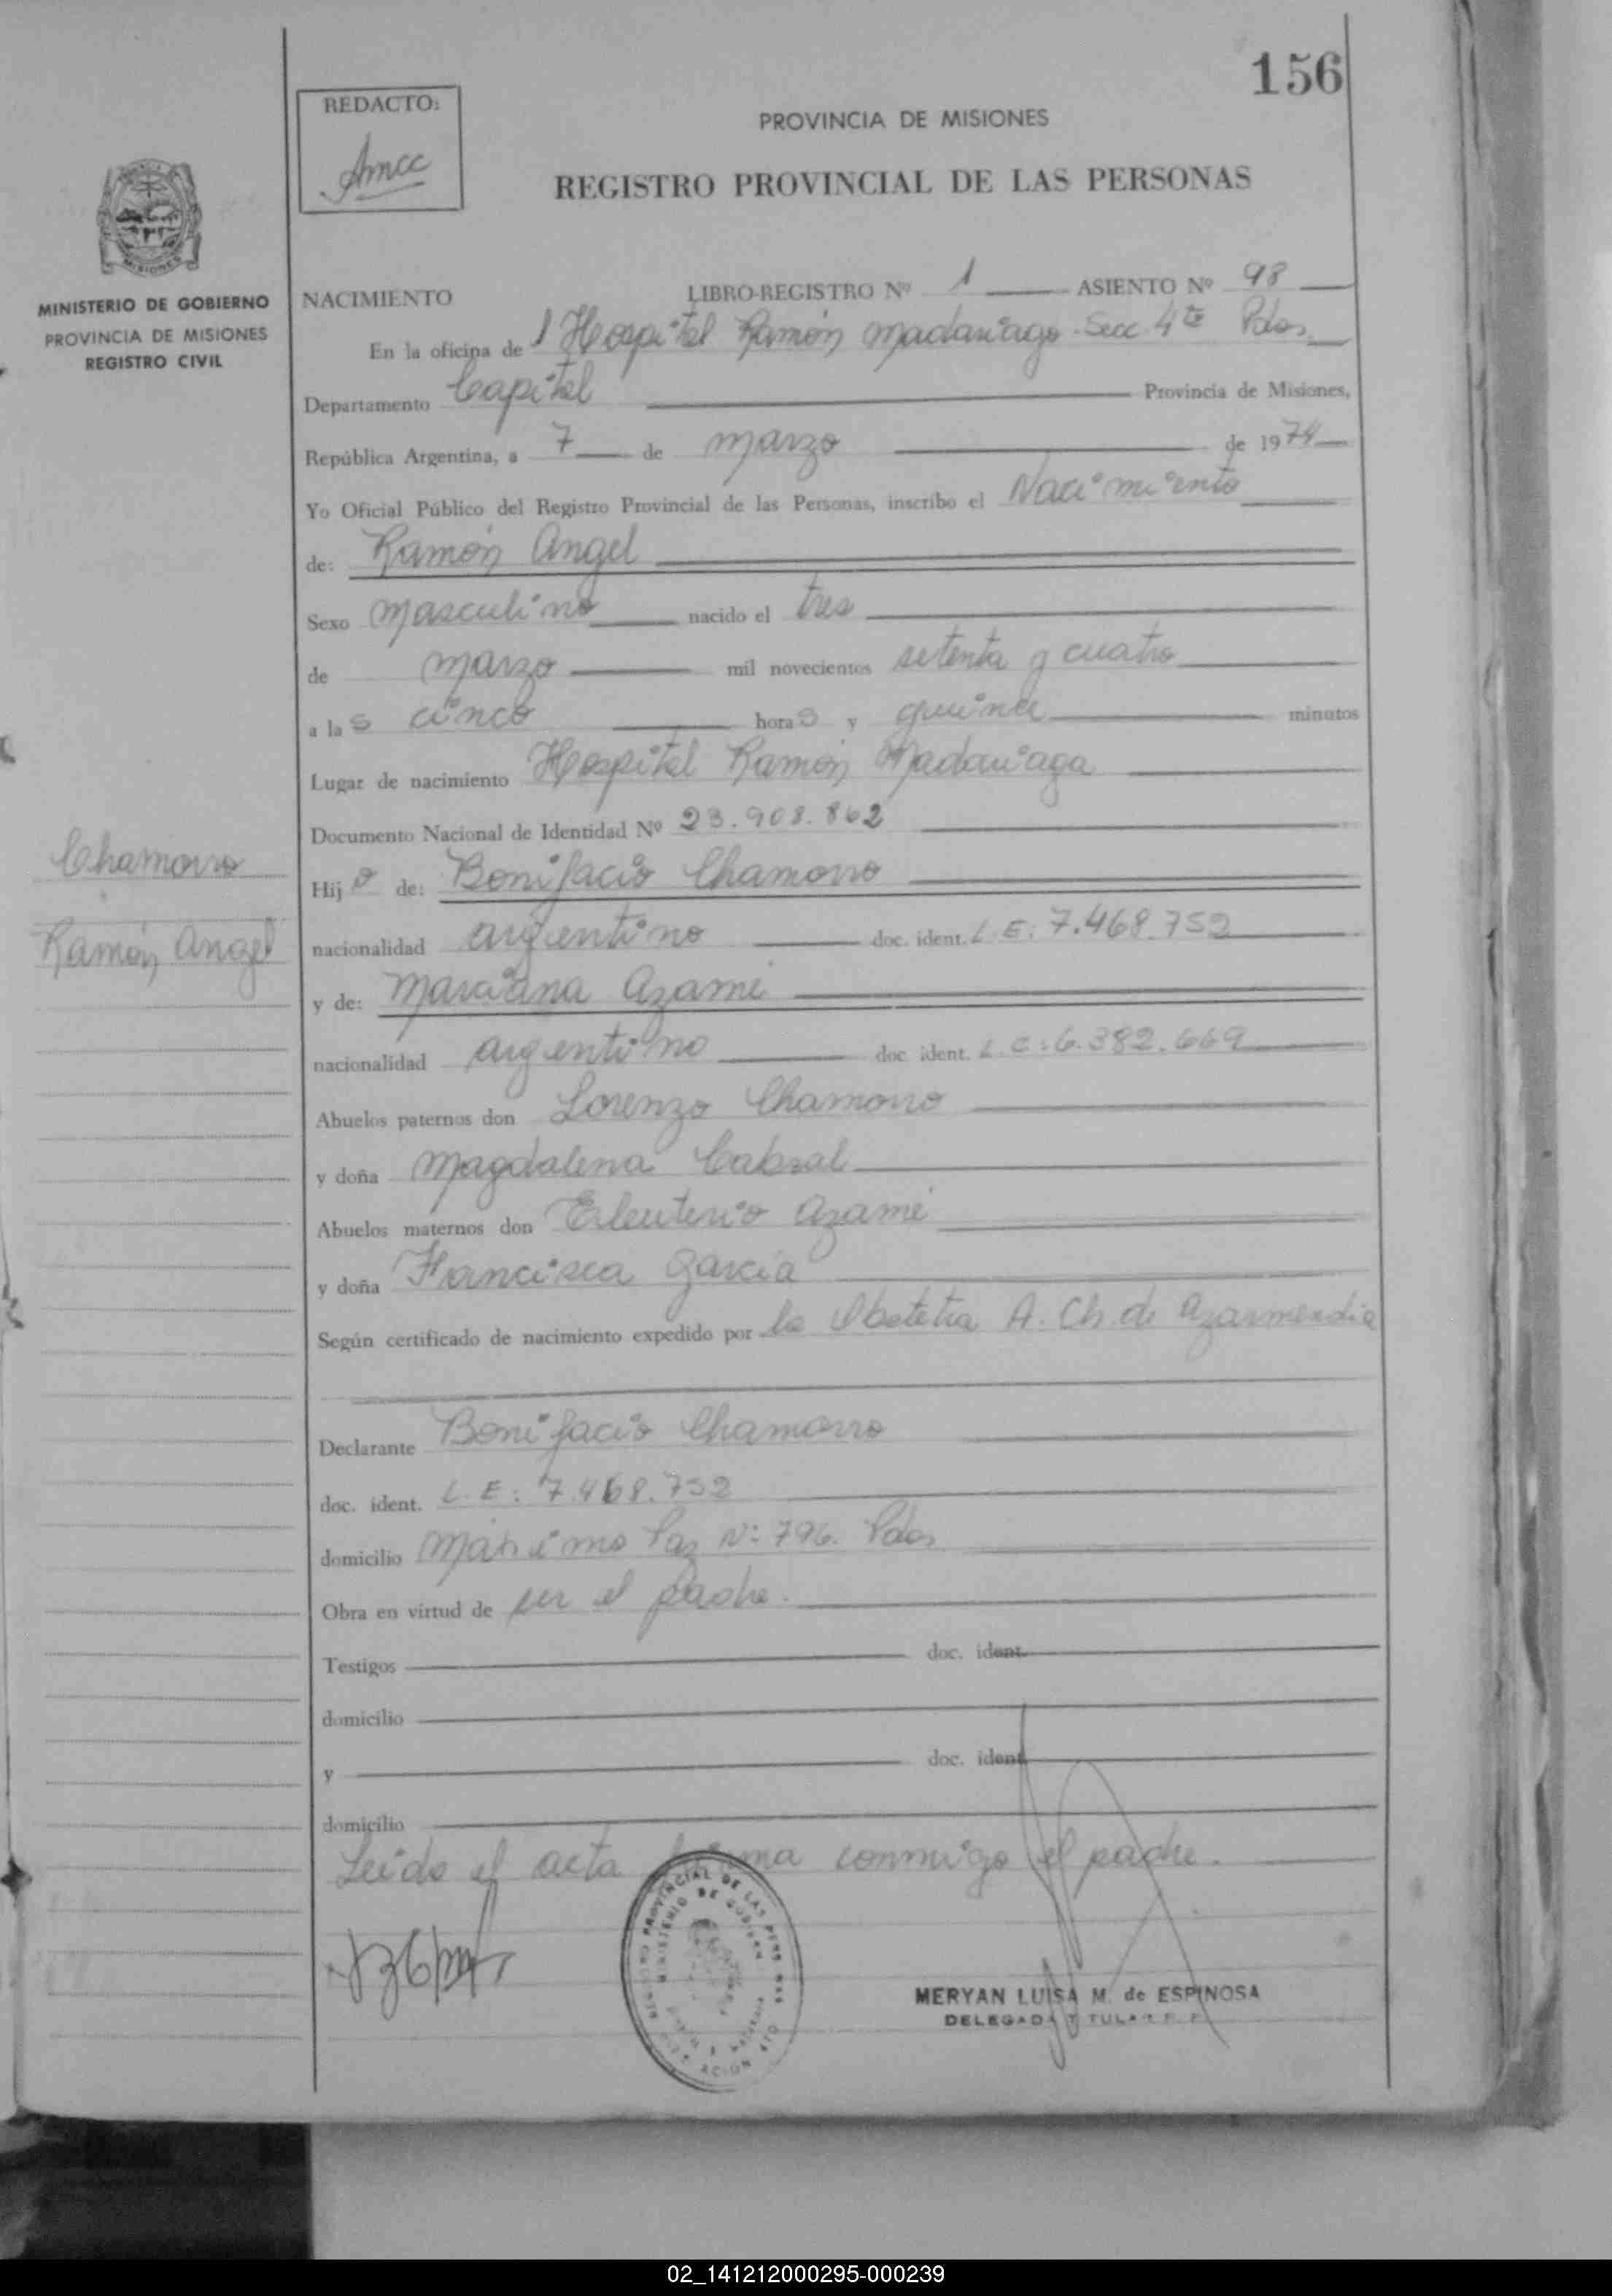 156
REDACTO:
Amcc
PROVINCIA DE MISIONES
REGISTRO PROVINCIAL DE LAS PERSONAS
MISIONES
MINISTERIO DE GOBIERNO
PROVINCIA DE MISIONES
REGISTRO CIVIL
NACIMIENTO LIBRO-REGISTRO Nº 1 ASIENTO Nº 98
En la oficina de l Hospital Ramón Madariaga - Secc 4ta Pdas.
Departamento Capital Provincia de Misiones,
República Argentina, a 7 de marzo de 1974
Yo Oficial Público del Registro Provincial de las Personas, inscribo el Nacimiento
de: Ramón Angel
Sexo masculino nacido el tres
de marzo mil novecientos setenta y cuatro
a las cinco horas y quince minutos
Lugar de nacimiento Hospital Ramón Madariaga
Documento Nacional de Identidad Nº 23.908.862
Chamorro
Hijo de: Bonifacio Chamorro
Ramón Angel
nacionalidad argentino doc. ident. L.E: 7.468.752
y de: Marciana Azami
nacionalidad argentino doc ident. L.C: 6.382.669
Abuelos paternos don Lorenzo Chamorro
y doña Magdalena Cabral
Abuelos maternos don Eleuterio Azami
y doña Francisca Garcia
Según certificado de nacimiento expedido por la Obstetra A. Ch. de Azarmendia
Declarante Bonifacio Chamorro
doc. ident. L.E: 7.468.752
domicilio Máximo Paz Nº: 796. Pdas
Obra en virtud de ser el padre.
Testigos doc. ident.
domicilio
y doc. ident
domicilio
Leido el acta firma conmigo el padre.
MERYAN LUISA M. de ESPINOSA
DELEGADA TITULAR
02_141212000295-000239